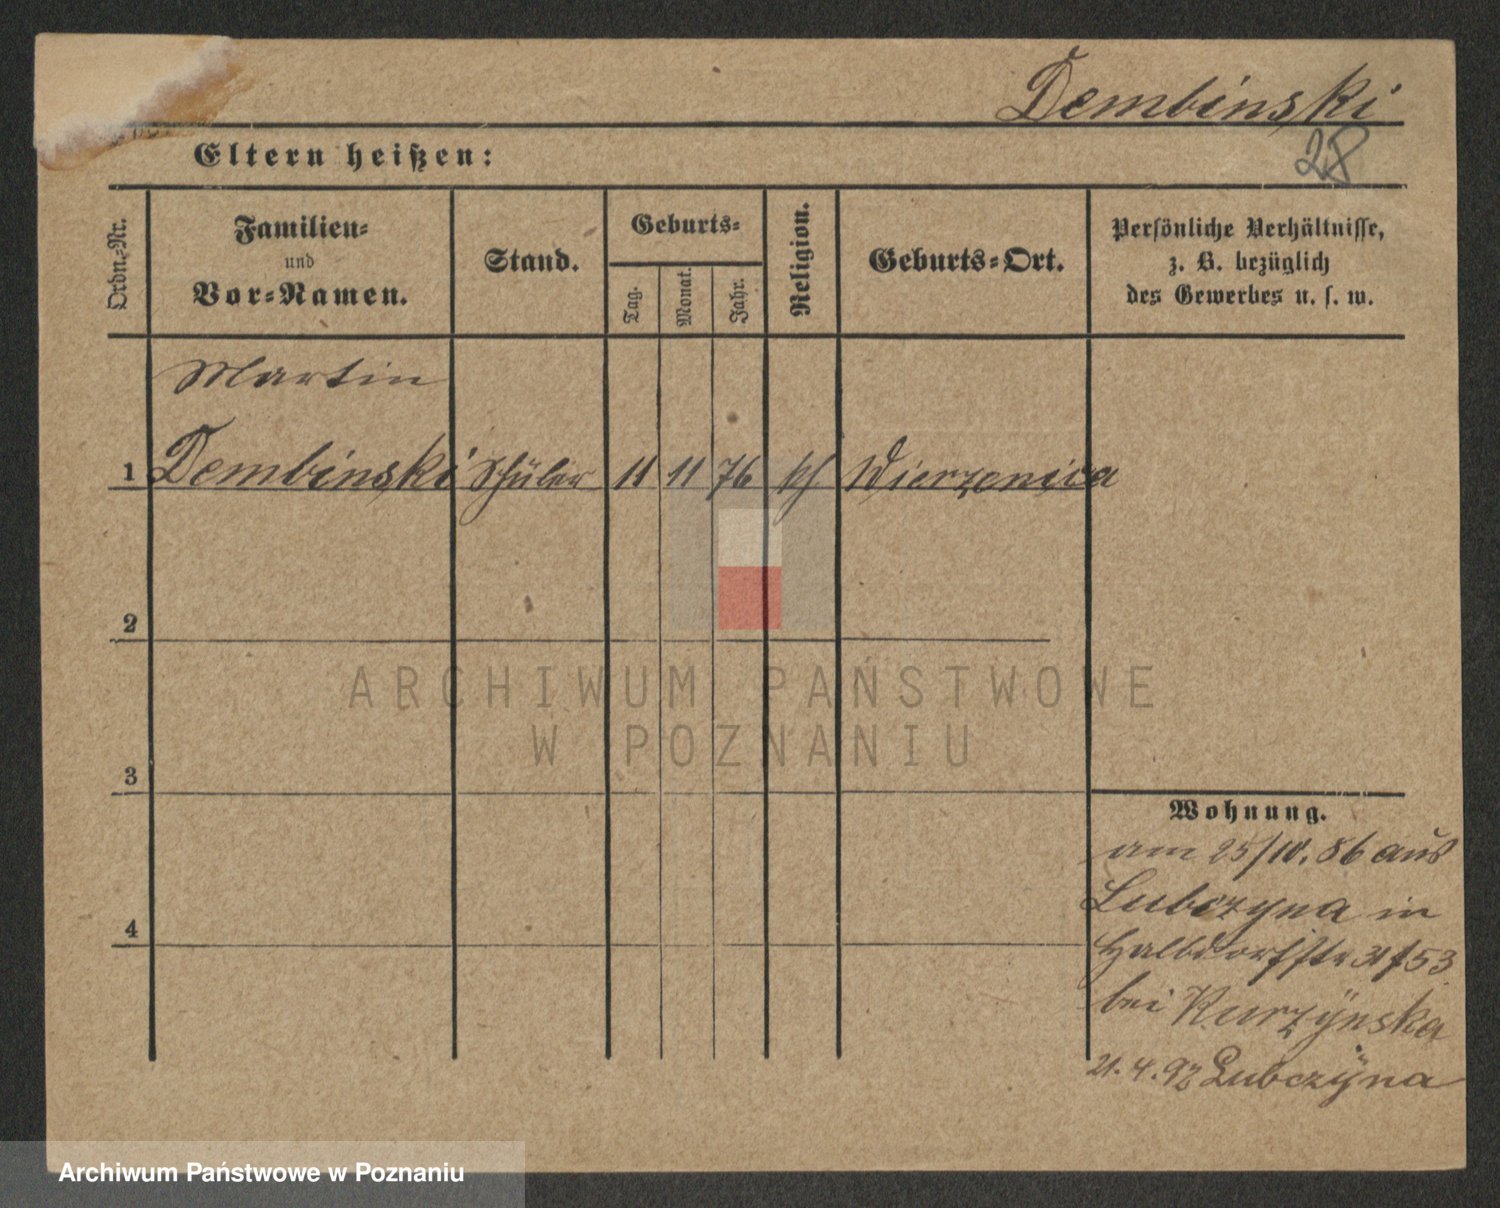 Dembinski
28
Eltern heißen:
Ordn.-Nr.
Familien-
und
Vor-Namen.
Stand.
Geburts-
Tag.
Monat.
Jahr.
Religion.
Geburts-Ort.
Persönliche Verhältnisse,
z. B. bezüglich
des Gewerbes u. s. w.
Martin
1 Dembinski Schüler 11 11 76 kh Wierzenica
2
ARCHIWUM PAŃSTWOWE
W POZNANIU
3
4
Wohnung.
am 25/10. 86 aus
Lubczyna in
Halbdorfstr 31/53
bei Kurzÿnska
21. 4. 92 Lubczÿna
Archiwum Państwowe w Poznaniu